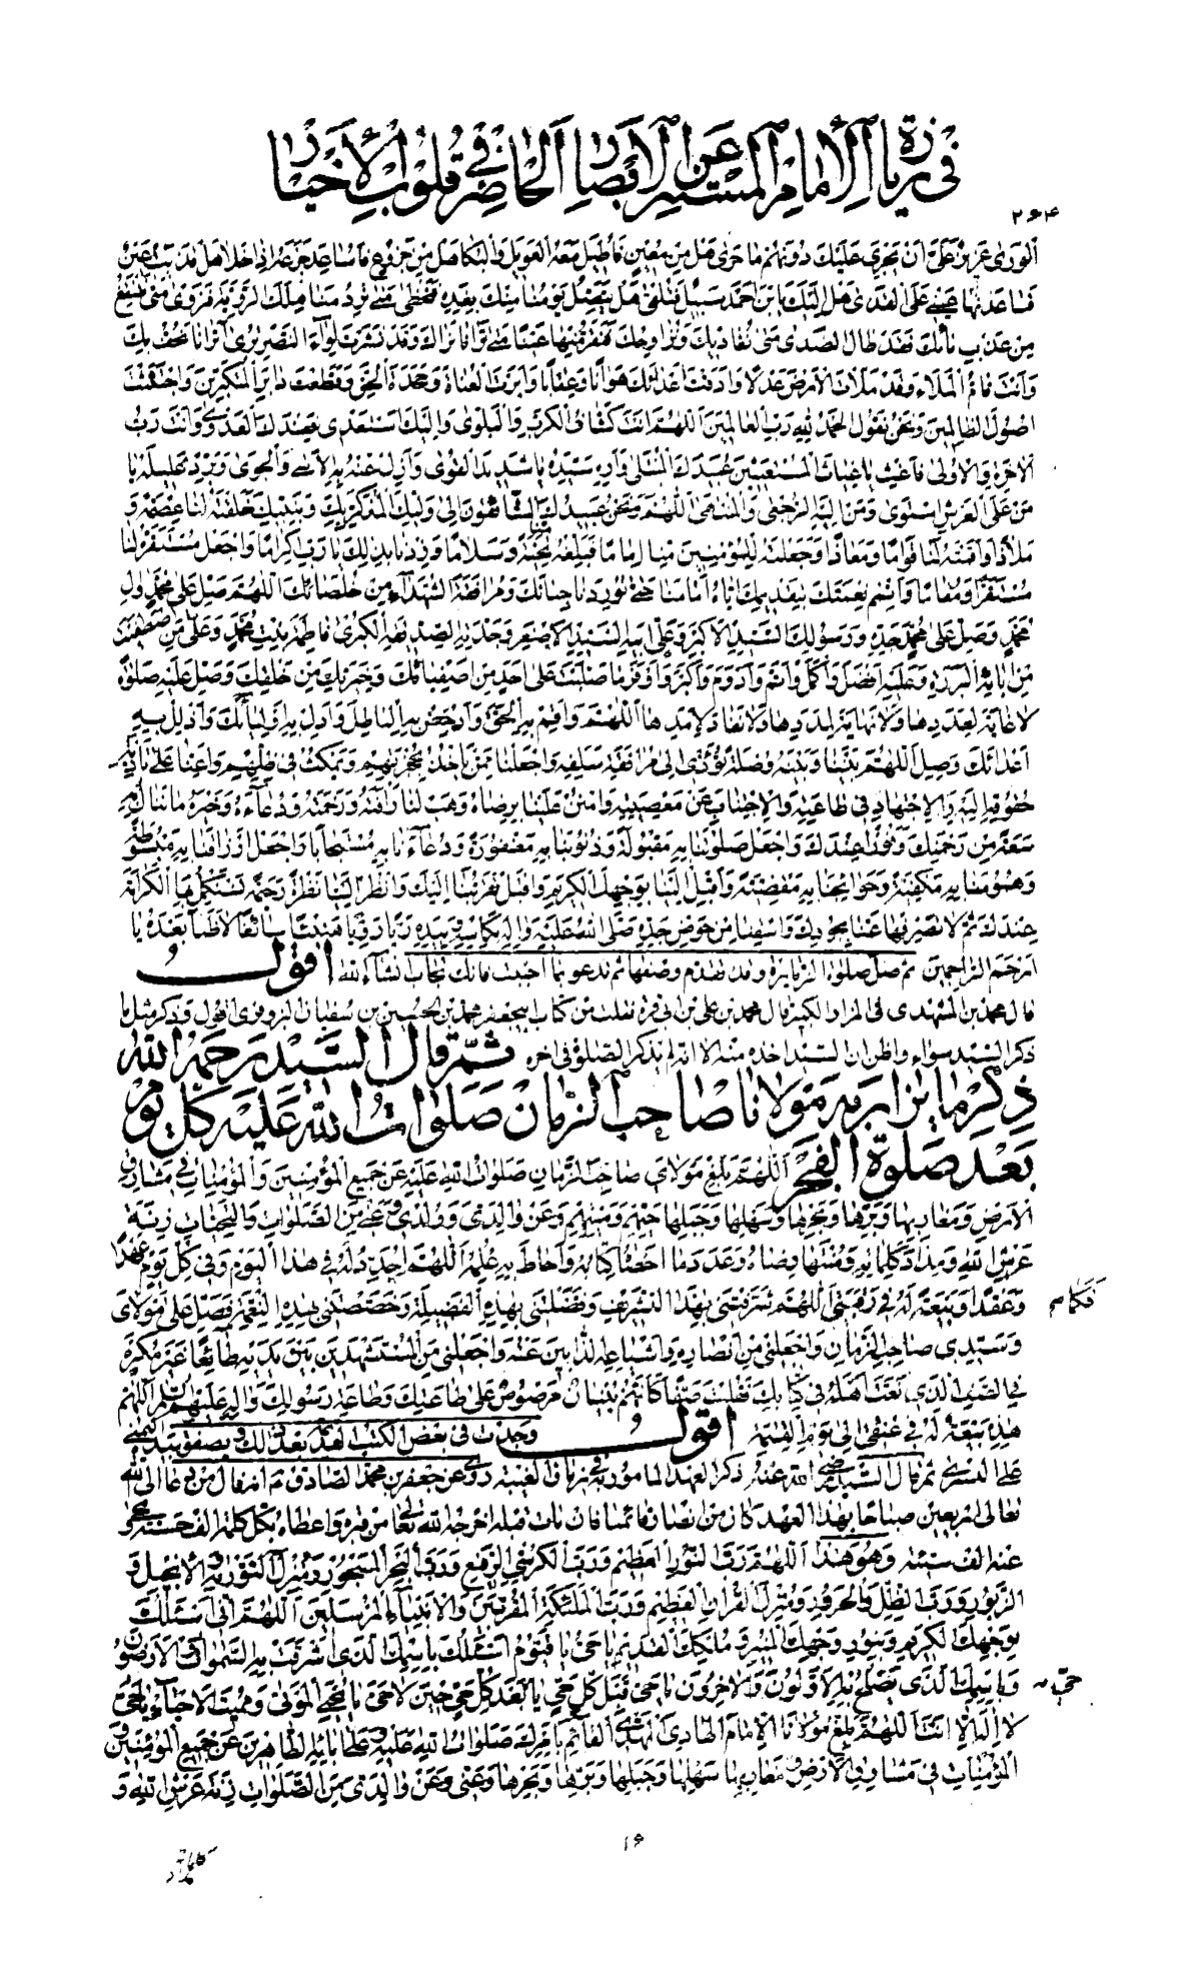 في زيارة الإمام المستتر عن الأبصار الحاضر في قلوب الأخيار
۲۶۴
الورى عزيز علي أن يجري عليك دونهم ما جرى هل من معين فأطيل معه العويل والبكاء هل من جزوع فأساعد جزعه إذا خلا هل قذيت عين
فساعدتها عيني على القذى هل إليك يا بن أحمد سبيل فتلقى هل يتصل يومنا منك بغده فنحظى متى نرد مناهلك الروية فنروى متى ننتفع
من عذب مائك فقد طال الصدى متى نغاديك ونراوحك فنقر منها عينا متى ترانا نراك وقد نشرت لواء النصر ترى أترانا نحف بك
وأنت تأم الملاء وقد ملأت الأرض عدلا وأذقت أعدائك هوانا وعقابا وأبرت العتاة وجحدة الحق وقطعت دابر المتكبرين واجتثثت
أصول الظالمين ونحن نقول الحمد لله رب العالمين اللهم أنت كشاف الكرب والبلوى وإليك أستعدي فعندك العدوى وأنت رب
الآخرة والأولى فأغث يا غياث المستغيثين عبيدك المبتلى وأره سيده يا شديد القوى وأزل عنه به الأسى والجوى وبرد غليله يا
من على العرش استوى ومن إليه الرجعى والمنتهى اللهم ونحن عبيدك الشائقون إلى وليك المذكر بك وبنبيك خلقته لنا عصمة و
ملاذا وأقمته لنا قواما ومعاذا وجعلته للمؤمنين منا إماما فبلغه تحية وسلاما وزدنا بذلك يا رب إكراما واجعل مستقره لنا
مستقرا ومقاما وأتمم نعمتك بتقديمك إياه أمامنا حتى توردنا جناتك ومرافقة الشهداء من خلصائك اللهم صل على محمد وآل
محمد وصل على محمد جده ورسولك السيد الأكبر وعلى أبيه السيد الأصغر وجدته الصديقة الكبرى فاطمة بنت محمد وعلى من اصطفيت
من آبائه البررة وعليه أفضل وأكمل وأتم وأدوم وأكبر وأوفر ما صليت على أحد من أصفيائك وخيرتك من خلقك وصل عليه صلوة
لا غاية لعددها ولا نهاية لمددها ولا نفاد لأمدها اللهم وأقم به الحق وأدحض به الباطل وأدل به أوليائك وأذلل به
أعدائك وصل اللهم بيننا وبينه وصلة تؤدي إلى مرافقة سلفه واجعلنا ممن يأخذ بحجزتهم ويمكث في ظلهم وأعنا على تأدية
حقوقه إليه والاجتهاد في طاعته والاجتناب عن معصيته وامنن علينا برضاه وهب لنا رأفته ورحمته ودعاءه وخيره ما ننال به
سعة من رحمتك وفوزا عندك واجعل صلوتنا به مقبولة وذنوبنا به مغفورة ودعاءنا به مستجابا واجعل أرزاقنا به مبسوطة
وهمومنا به مكفية وحوائجنا به مقضية وأقبل إلينا بوجهك الكريم واقبل تقربنا إليك وانظر إلينا نظرة رحيمة نستكمل بها الكرامة
عندك ثم لا تصرفها عنا بجودك واسقنا من حوض جده صلى الله عليه وآله بكأسه وبيده ريا رويا هنيئا سائغا لا ظمأ بعده يا
أرحم الراحمين ثم صل صلوة الزيارة وقد تقدم وصفها ثم تدعو بما أحببت فإنك تجاب إنشاء الله أقول
قال محمد بن المشهدي في المزار الكبير قال محمد بن علي بن أبي قرة نقلت من كتاب أبي جعفر محمد بن الحسين بن سفيان البزوفري أقول وذكر مثل ما
ذكر السيد سواء وأظن أن السيد أخذه منه إلا أنه لم يذكر الصلوة في آخره ثم قال السيد رحمه الله
ذكر ما يزار به مولانا صاحب الزمان صلوات الله عليه كل يوم
بعد صلوة الفجر اللهم بلغ مولاي صاحب الزمان صلوات الله عليه عن جميع المؤمنين والمؤمنات في مشارق
الأرض ومغاربها وبرها وبحرها وسهلها وجبلها حيهم وميتهم وعن والدي وولدي وعني من الصلوات والتحيات زنة
عرش الله ومداد كلماته ومنتهى رضاه وعدد ما أحصاه كتابه وأحاط به علمه اللهم أجدد له في هذا اليوم وفي كل يوم عهدا
وعقدا وبيعة له في رقبتي اللهم فكما شرفتني بهذا التشريف وفضلتني بهذه الفضيلة وخصصتني بهذه النعمة فصل على مولاي
وسيدي صاحب الزمان واجعلني من أنصاره وأشياعه الذابين عنه واجعلني من المستشهدين بين يديه طائعا غير مكره
في الصف الذي نعت أهله في كتابك فقلت صفا كأنهم بنيان مرصوص على طاعتك وطاعة رسولك وآله عليهم السلام اللهم
هذه بيعة له في عنقي إلى يوم القيمة أقول وجدت في بعض الكتب القديمة بعد ذلك ويصفق بيده اليمنى
على اليسرى ثم قال السيد رضي الله عنه ذكر العهد المأمور به في زمان الغيبة روي عن جعفر بن محمد الصادق ع أنه قال من دعا إلى الله
تعالى أربعين صباحا بهذا العهد كان من أنصار قائمنا فإن مات قبله أخرجه الله تعالى من قبره وأعطاه بكل كلمة ألف حسنة ومحى
عنه ألف سيئة وهو هذا اللهم رب النور العظيم ورب الكرسي الرفيع ورب البحر المسجور ومنزل التورية والإنجيل و
الزبور ورب الظل والحرور ومنزل القرآن العظيم ورب الملئكة المقربين والأنبياء والمرسلين اللهم إني أسئلك
بوجهك الكريم وبنور وجهك المنير وملكك القديم يا حي يا قيوم أسئلك باسمك الذي أشرقت به السموات والأرضون
وباسمك الذي يصلح به الأولون والآخرون يا حي قبل كل حي يا حي بعد كل حي حين لا حي يا محيي الموتى ومميت الأحياء يا حي
لا إله إلا أنت اللهم بلغ مولانا الإمام الهادي المهدي القائم بأمرك صلوات الله عليه وعلى آبائه الطاهرين عن جميع المؤمنين و
المؤمنات في مشارق الأرض ومغاربها سهلها وجبلها وبرها وبحرها وعني وعن والدي من الصلوات زنة عرش الله و
۱۶